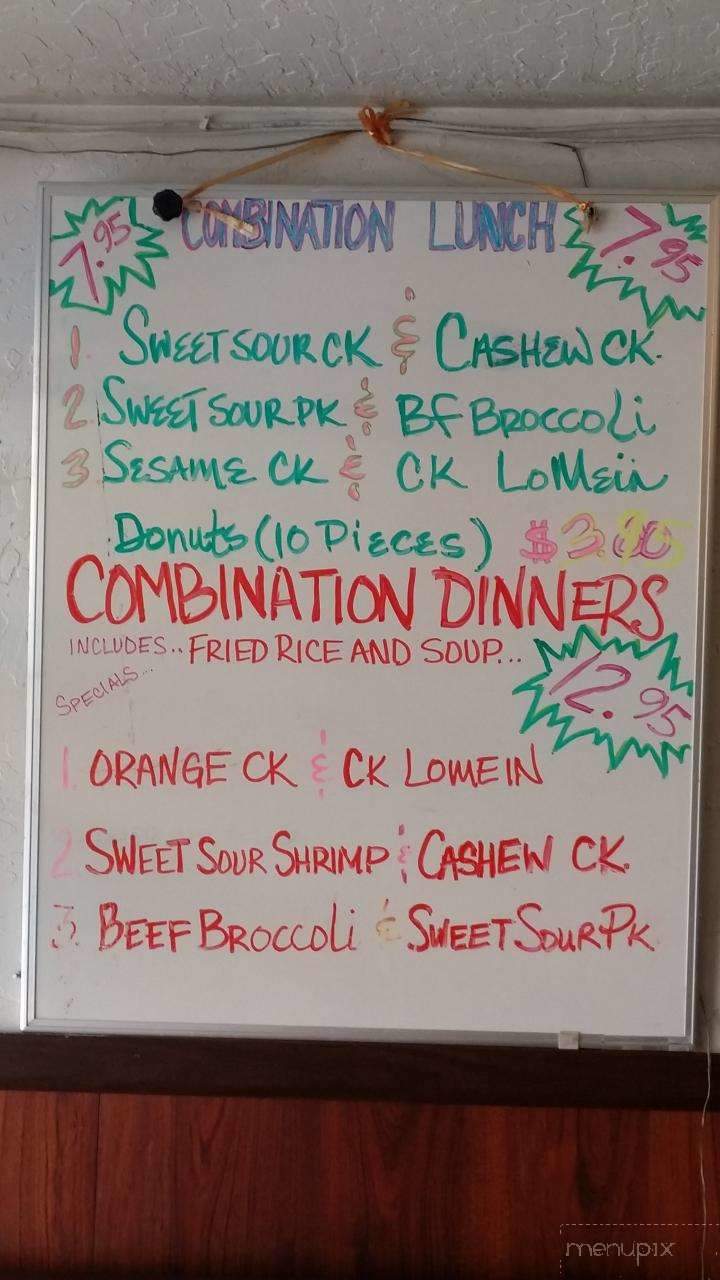 7.95 COMBINATION LUNCH 7.95
1. SWEET SOUR CK & CASHEW CK.
2. SWEET SOUR PK & BF BROCCOLi
3. SESAME CK & CK LOMEiN
Donuts (10 PiECES) $3.
COMBINATION DINNERS
INCLUDES.. FRIED RICE AND SOUP...
SPECIALS... 12.95
1. ORANGE CK & CK LOMEIN
2. SWEET SOUR SHRIMP & CASHEW CK.
3. BEEF BROCCOLi & SWEET SOUR PK.
menupix